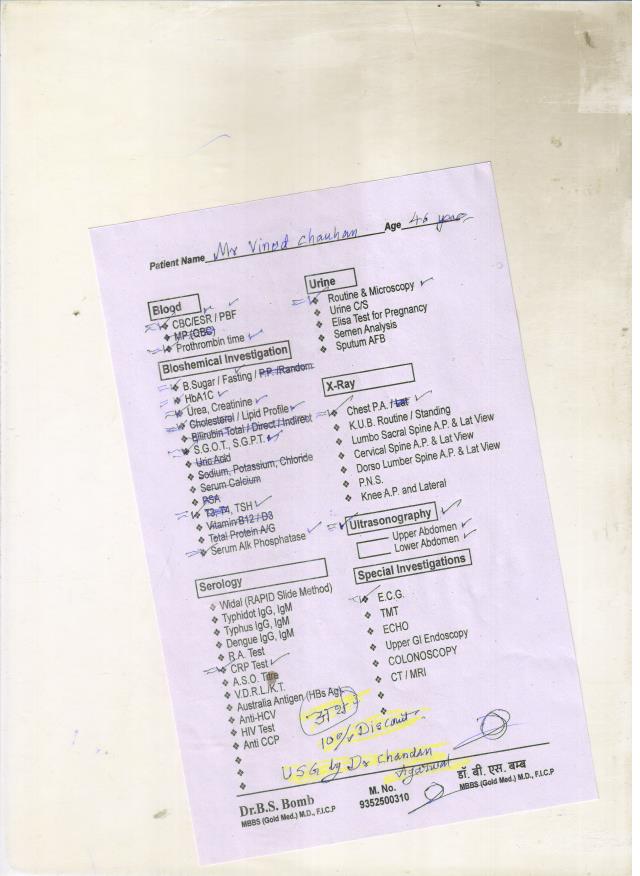 Patient Name Mr Vinod Chauhan Age 46 years
Blood
CBC/ESR / PBF
MP (QBC)
Prothrombin time
Bioshemical Investigation
B.Sugar / Fasting / P.P. /Random
HbA1C
Urea, Creatinine
Cholesterol / Lipid Profile
Bilirubin Total / Direct / Indirect
S.G.O.T., S.G.P.T.
Uric Acid
Sodium, Potassium, Chloride
Serum Calcium
PSA
T3, T4, TSH
Vitamin B12 / D3
Total Protein A/G
Serum Alk Phosphatase
Serology
Widal (RAPID Slide Method)
Typhidot IgG, IgM
Typhus IgG, IgM
Dengue IgG, IgM
R.A. Test
CRP Test
A.S.O. Titre
V.D.R.L./K.T.
Australia Antigen (HBs Ag)
Anti-HCV
HIV Test
Anti CCP
Urine
Routine & Microscopy
Urine C/S
Elisa Test for Pregnancy
Semen Analysis
Sputum AFB
X-Ray
Chest P.A. / Lat
K.U.B. Routine / Standing
Lumbo Sacral Spine A.P. & Lat View
Cervical Spine A.P. & Lat View
Dorso Lumber Spine A.P. & Lat View
P.N.S.
Knee A.P. and Lateral
Ultrasonography
Upper Abdomen
Lower Abdomen
Special Investigations
E.C.G.
TMT
ECHO
Upper GI Endoscopy
COLONOSCOPY
CT / MRI
10% Discount
USG by Dr Chandan
Agarwal
Dr.B.S. Bomb
MBBS (Gold Med.) M.D., F.I.C.P
M. No.
9352500310
डॉ. बी. एस. बम्ब
MBBS (Gold Med.) M.D., F.I.C.P